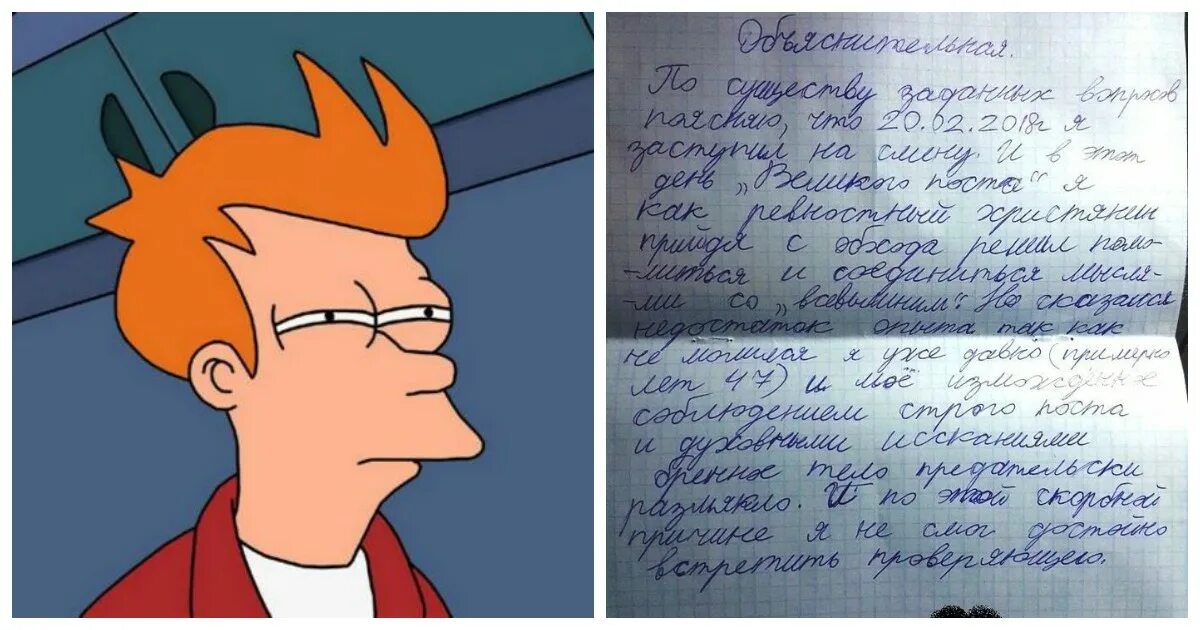 Объяснительная.
По существу заданных вопросов
поясняю, что 20.02.2018г я
заступил на смену. И в этот
день „Великого поста" я
как ревностный христянин
прийдя с обхода решил помо-
-литься и соединиться мысля-
-ми со „всевышним". Но сказался
недостаток опыта так как
не молился я уже давно (примерно
лет 47) и моё изможденное
соблюдением строго поста
и духовными иссканиями
бренное тело предательски
размякло. И по этой скорбной
причине я не смог достойно
встретить проверяющего.